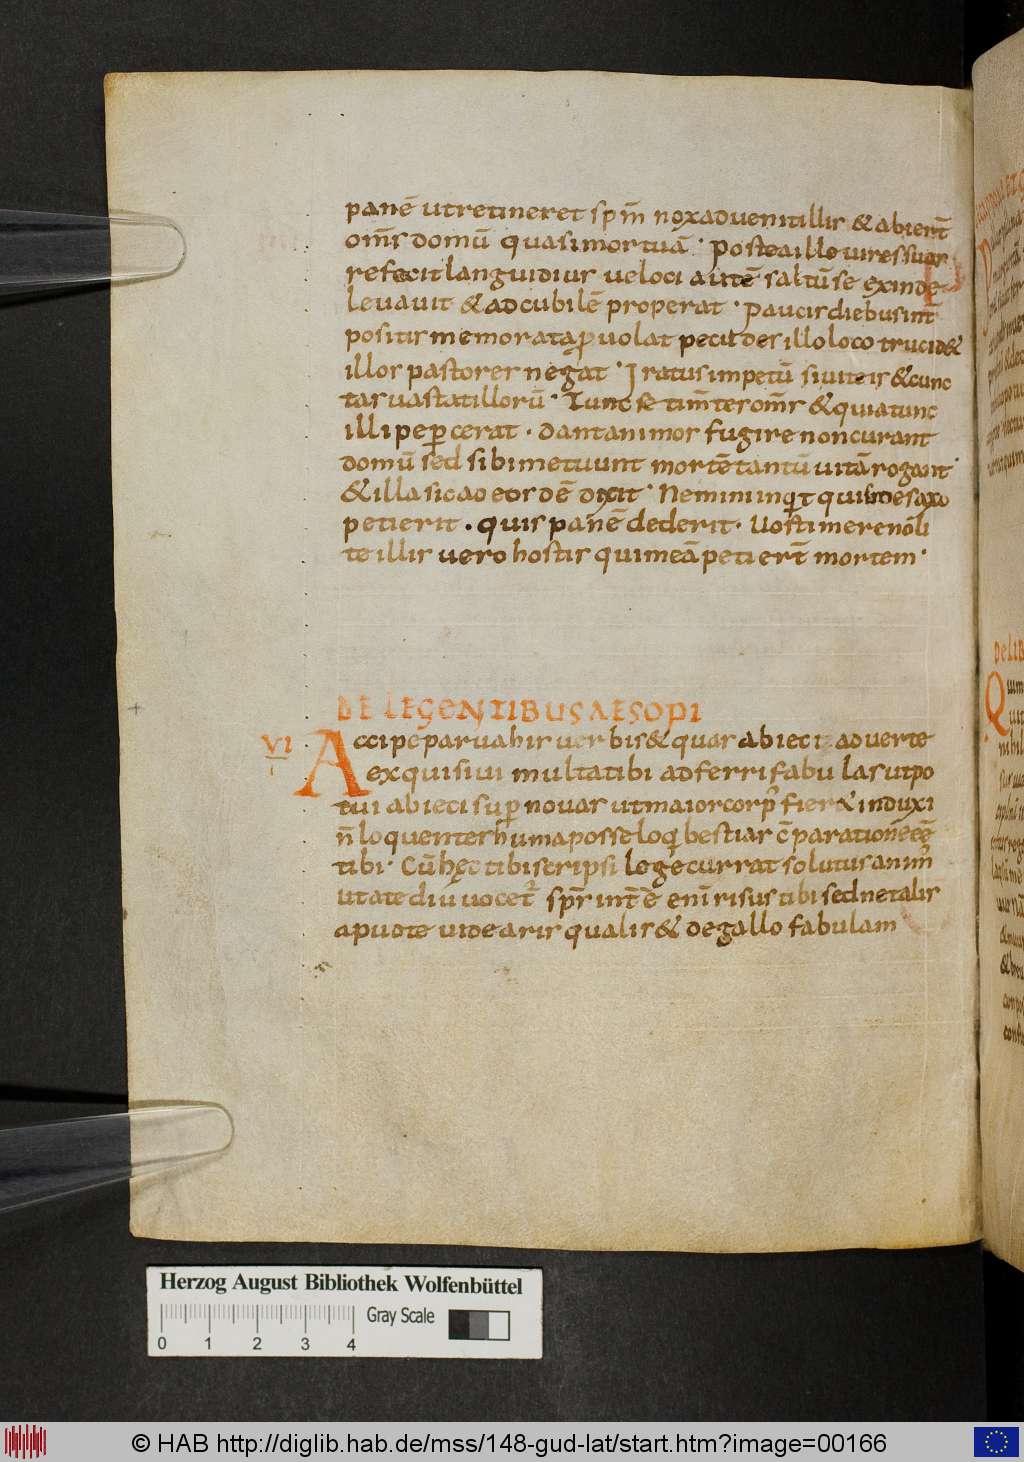 panē utretineret spm̄ nox aduenit illis & abiert̄
om̄s domū quasi mortuā · postea illo uires suas
refecit languidius ueloci autē saltū se exinde
leuauit & ad cubilē properat · Paucis diebus int̄
positis memorata ꝓuolat pecudes illo loco trucid&
illos pastores negat · Iratus impetū siuiteis & cunc
tas uastat illorū · Tunc se tim̄tes om̄s & quia tunc
illi peꝑcerat · dant animos fugire non curant
domū sed sibi metuunt mortē tantū uitā rogant ·
& illa sic ad eos dē dixit · Nemini inqt qui me saxo
petierit · quis panē dederit · Uosti mere noli
te illis uero hostis qui meā petiert̄ mortem ·
DE LEGENTIBUS AESOPI
VI
Accipe parua his uerbis & quas abieci aduerte
exquisiui multa tibi adferri fabulas ut po
tui abieci suꝑ nouas ut maior corp' fier& induxi
n̄ loquenter huma posse loqi bestias c̄ parationē eē
tibi · Cū hęc tibi scripsi loge currat solutus anim'
utate diu uocet' spr̄ int̄ ē eni risus tibi sed ne talis
apuo te uidearis qualis & de gallo fabulam
De LIB
Herzog August Bibliothek Wolfenbüttel
Gray Scale
0 1 2 3 4
© HAB http://diglib.hab.de/mss/148-gud-lat/start.htm?image=00166